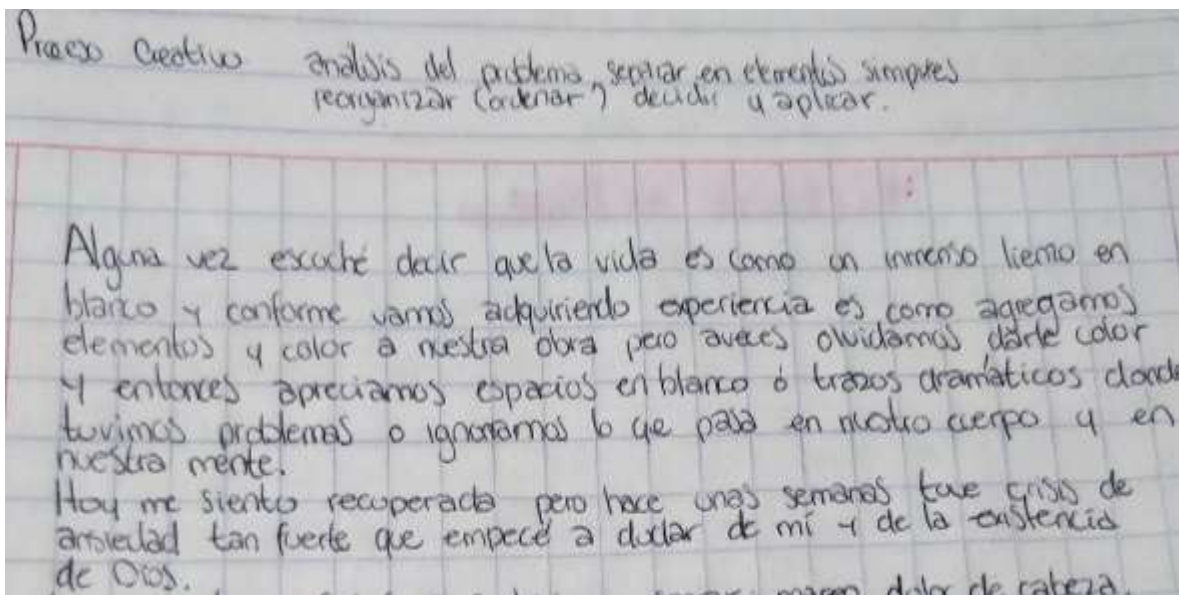 Proceso Creativo análisis del problema, separar en elementos simples
reorganizar (ordenar) decidir y aplicar.
Alguna vez escuché decir que la vida es como un inmenso lienzo en
blanco y conforme vamos adquiriendo experiencia es como agregamos
elementos y color a nuestra obra pero aveces olvidamos darle color
y entonces apreciamos espacios en blanco ó trazos dramáticos donde
tuvimos problemas o ignoramos lo que pasa en nuestro cuerpo y en
nuestra mente.
Hoy me siento recuperada pero hace unas semanas tuve crisis de
ansiedad tan fuerte que empecé a dudar de mí y de la existencia
de Dios.
mareo, dolor de cabeza,